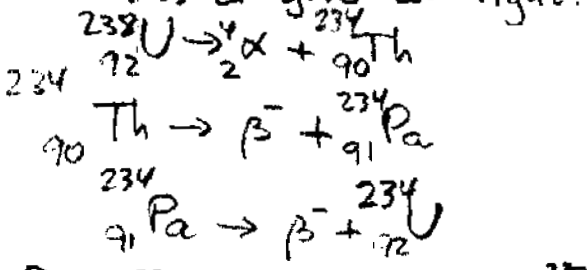 ²³⁸₉₂U → ⁴₂α + ²³⁴₉₀Th
²³⁴₉₀Th → β⁻ + ²³⁴₉₁Pa
²³⁴₉₁Pa → β⁻ + ²³⁴₉₂U